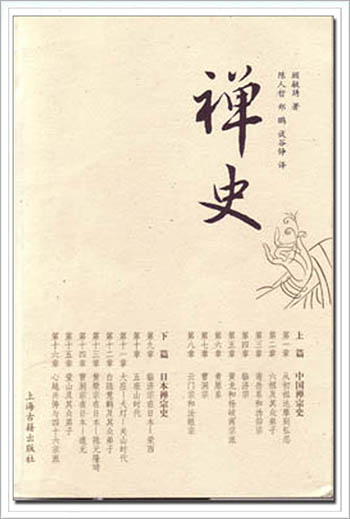 顾毓琇 著
陈人哲 郑鹏 谈谷铮 译
禅史
上篇 中国禅宗史
第一章 从初祖达摩到弘忍
第二章 六祖及其众弟子
第三章 南岳系和沩仰宗
第四章 临济宗
第五章 黄龙和杨岐两宗派
第六章 青原系
第七章 曹洞宗
第八章 云门宗和法眼宗
下篇 日本禅宗史
第九章 临济宗在日本—荣西
第十章 五座山时代
第十一章 大应—大灯—关山时代
第十二章 白隐慧鹤及其众弟子
第十三章 黄檗宗在日本—隐元隆琦
第十四章 曹洞宗在日本—道元
第十五章 莹山及其众弟子
第十六章 心越兴俦与四十六宗派
上海古籍出版社